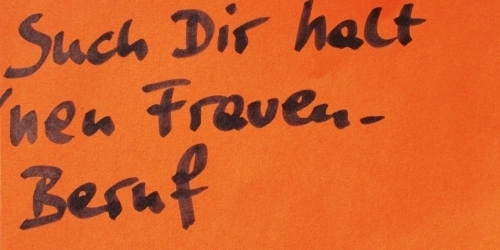 Such Dir halt
'nen Frauen-
Beruf